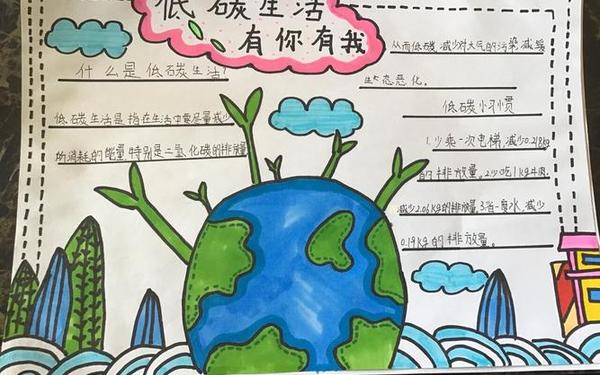 低碳生活
有你有我
什么是低碳生活?
低碳生活是指在生活中要尽量减少
所消耗的能量,特别是二氧化碳的排放量
从而低碳,减少对大气的污染,减缓
生态恶化。
低碳小习惯
1.少乘一次电梯,减少0.218kg
的排放量。2.少吃1kg牛肉
减少2.06kg的排放量。3.省一度水,减少
0.19kg的排放量。